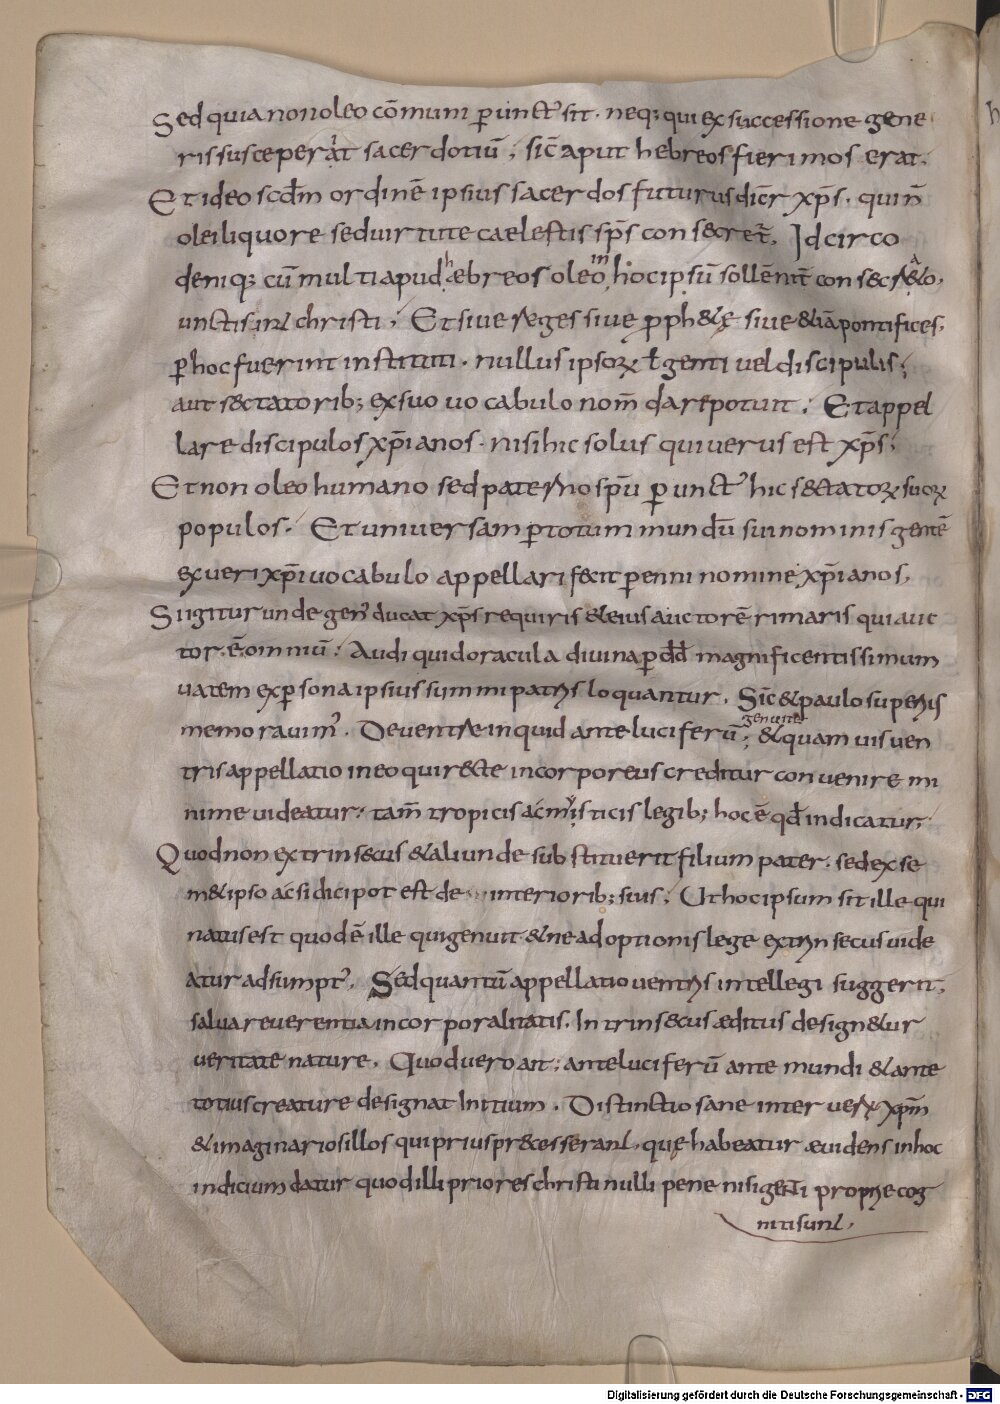 Sed quia non oleo cōmuni ꝑunctꝰ sit. neq; qui ex successione gene
ris susceperat sacerdotiū, sic̄ aput hebreos fieri mos erat.
Et ideo scdm̄ ordinē ipsius sacerdos futurus dicr̄ xp̄s. qui n̄
olei liquore sed uirtute caelestis sp̄s consecret̄. Idcirco
deniq; cū multi apud hæbreos oleo hoc ipsū sollēnit̄ consecrato,
uncti sint christi; Et siue reges siue ꝓphetę siue etiā pontifices,
ꝑ hoc fuerint instituti. nullus ipsoꝝ ł genti uel discipulis;
aut sectatorib; ex suo uocabulo nom̄ dare potuit; Et appel
lare discipulos xp̄ianos. nisi hic solus qui uerus est xp̄s;
Et non oleo humano sed paterno sp̄u ꝑunctꝰ hic sectatoꝝ suoꝝ
populos. Et uniuersam ꝑ totum mundū sui nominis gentē
ex ueri xp̄i uocabulo appellari fecit ꝑenni nomine xp̄ianos,
Si igitur unde genꝰ ducat xp̄s requiris & eius auctorē rimaris qui auc
tor ē omniū; Audi quid oracula diuina ꝑ dd̄ magnificentissimum
uatem ex ꝑsona ipsius summi patris loquantur. Sic̄ & paulo superis
memorauimꝰ. De uentre inquid ante luciferū genui te; & quamuis uen
tris appellatio in eo qui recte incorporeus creditur conuenire mi
nime uideatur; tam̄ tropicis ac mysticis legib; hoc ē qd̄ indicatur,
Quod non extrinsecus & aliunde substituerit filium pater. sed ex se
met ipso ac si dici potest de interiorib; suis, Ut hoc ipsum sit ille qui
natus est quod ē ille qui genuit. & ne adoptionis lege extrinsecus uide
atur adsumptꝰ. Sed quantū appellatio uentris intellegi suggerit,
salua reuerentia incorporalitatis. Intrinsecus æditus designetur
ueritate nature. Quod uero ait; ante luciferū ante mundi & ante
totius creature designat Initium. Distinctio sane inter uerꝝ xp̄m
& imaginarios illos qui prius p̄cesserant. quę habeatur æuidens in hoc
indicium datur quod illi priores christi nulli pene nisi genti proprie cog
niti sunt,
Digitalisierung gefördert durch die Deutsche Forschungsgemeinschaft - DFG